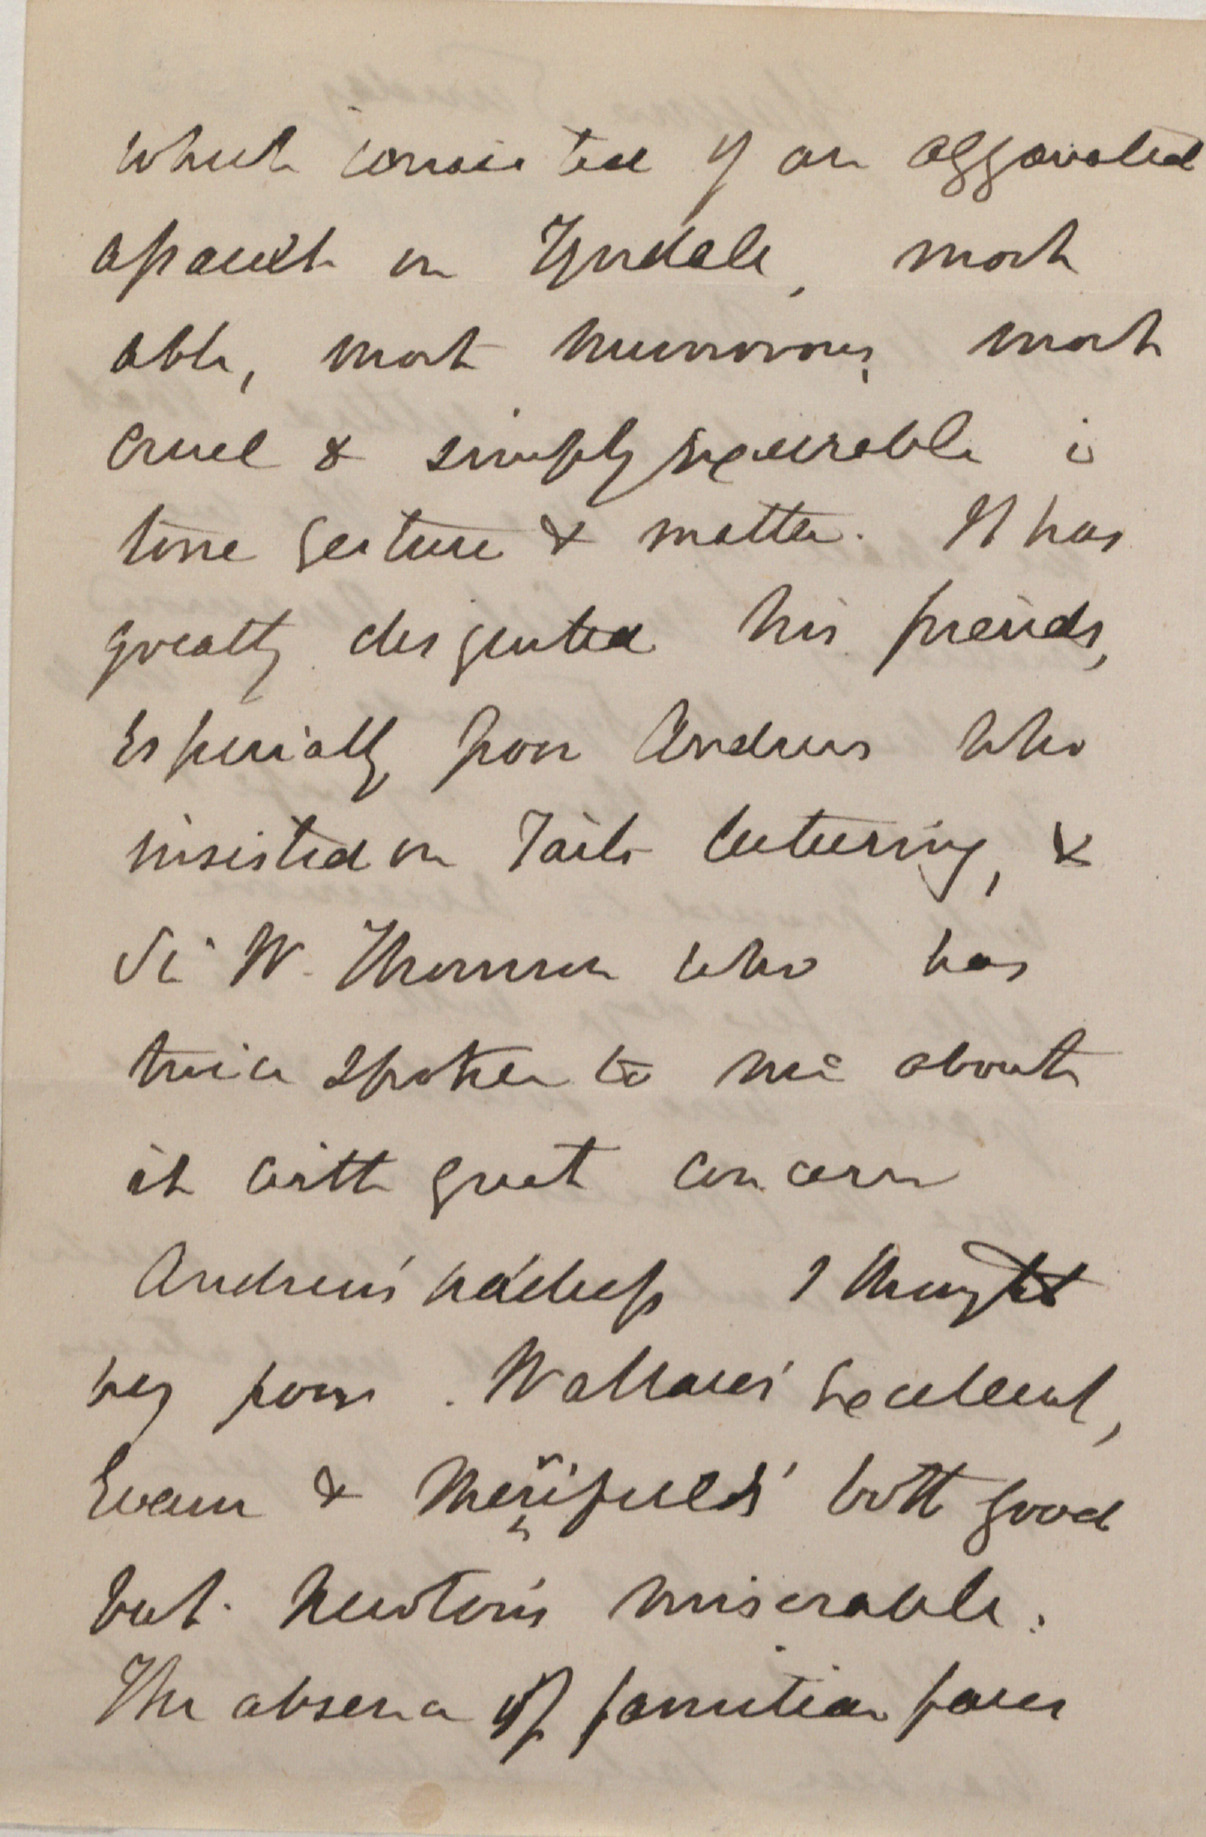 which consisted of an aggravated
assault on Tyndale, most
able, most humorous, most
cruel & simply execrable in
tone gesture & matter. It has
greatly disgusted his friends,
especially poor Andrews who
insisted on Tait's lecturing, &
Sir W. Thomson who has
twice spoken to me about
it with great concern
Andrews' address I thought
very poor. Wallace's excellent,
Evans & Merrifield's both good
but Newton's miserable.
The absence of familiar faces